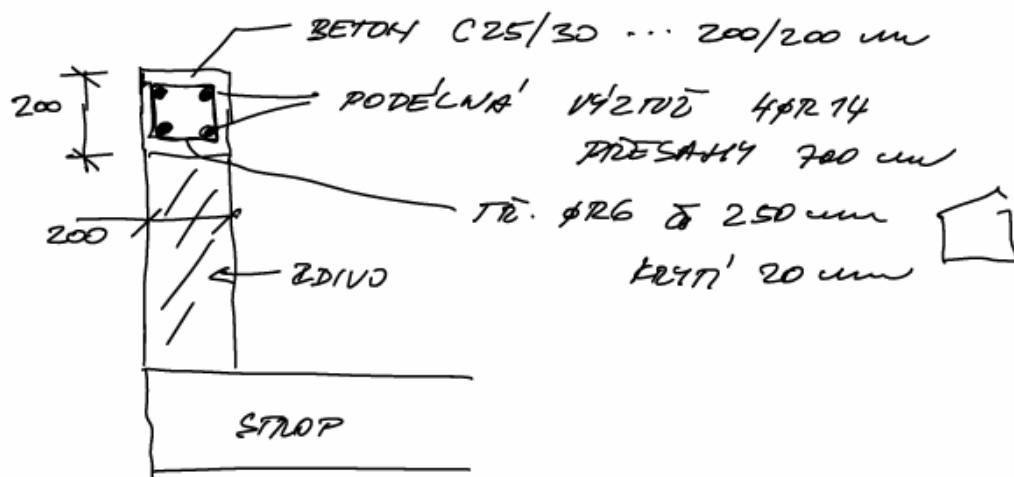 BETON C25/30 ... 200/200 mm
200
PODÉLNÁ VÝZTUŽ 4φR14
PŘESAHY 700 mm
TŘ. φR6 á 250 mm
200
KRYTÍ 20 mm
ZDIVO
STROP